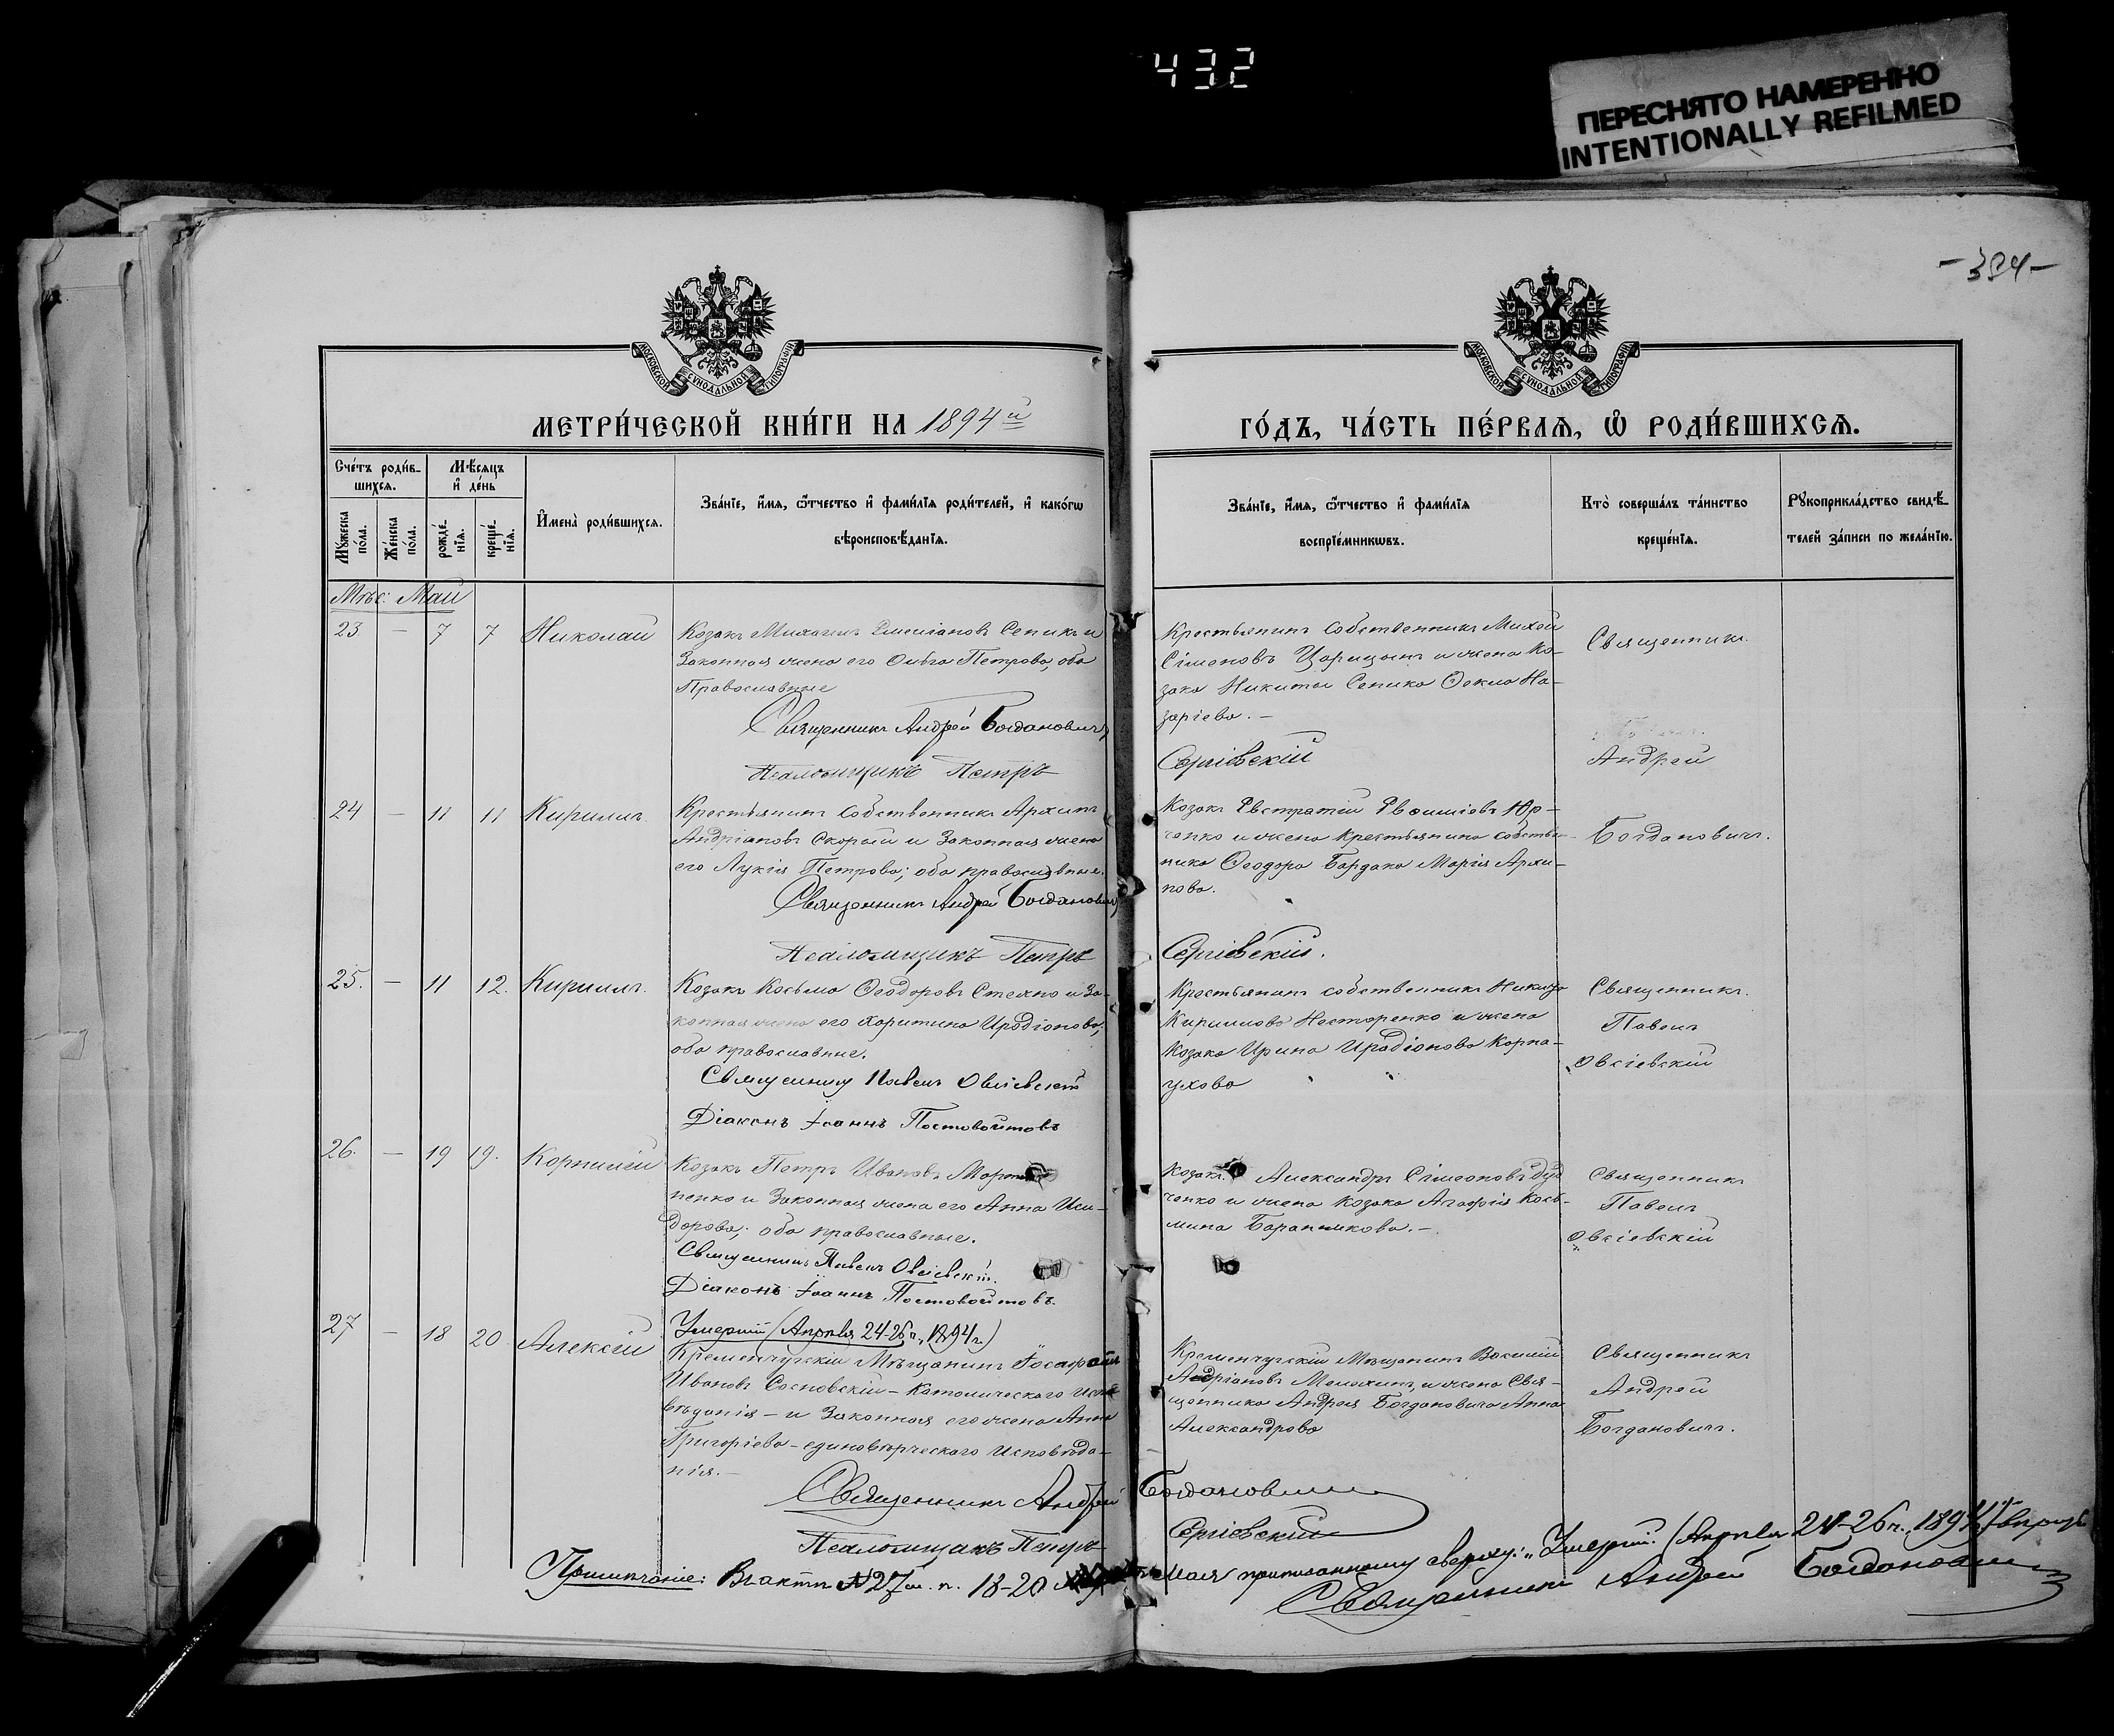 432
ПЕРЕСНЯТО НАМЕРЕННО
INTENTIONALLY REFILMED
-394-
МОСКОВСКОЙ СУНОДАЛЬНОЙ ТИПОГРАФІИ
МОСКОВСКОЙ СУНОДАЛЬНОЙ ТИПОГРАФІИ
МЕТРИ́ЧЕСКОЙ КНИ́ГИ НА 1894й
ГО́ДЪ, ЧА́СТЬ ПЕ́РВАѦ, Ѡ РОДИ́ВШИХСѦ.
Сче́тъ роди́в-
шихсѧ.
Мѣ́сѧцъ
и де́нь
Мꙋ́жеска
по́ла.
Же́нска
по́ла.
рожде́-
нїѧ.
креще́-
нїѧ.
Имена̀ роди́вшихсѧ.
Зва́нїе, и́мѧ, ѻ́тчество и фами́лїѧ роди́телей, и како́гѡ
вѣроисповѣ́данїѧ.
Зва́нїе, и́мѧ, ѻ́тчество и фами́лїѧ
воспрїе́мникѡвъ.
Кто̀ соверша́лъ та́инство
креще́нїѧ.
Рꙋкоприкла́дство свидѣ́-
телей за́писи по жела́нїю.
Мѣс: Май
23 — 7 7 Николай
Козакъ Михаилъ Емеліановъ Сепикъ и
Законная жена его Ольга Петрова, оба
Православные
Священникъ Андрей Богдановичъ
Псаломщикъ Петръ
Крестьянинъ Собственникъ Михей
Сімеоновъ Царицынъ и жена Ко-
зака Никиты Сепика Ѳекла На-
заріева. —
Сергіевскій
Священникъ
Андрей
24 — 11 11 Кириллъ
Крестьянинъ Собственникъ Архипъ
Андріановъ Скорый и Законная жена
его Лукія Петрова; оба православные.
Священникъ Андрей Богдановичъ
Псаломщикъ Петръ
Козакъ Евстратій Евѳиміевъ Юр-
ченко и жена Крестьянина собствен-
ника Ѳеодора Бардака Марія Архи-
пова.
Сергіевскій.
Богдановичъ.
25. — 11 12. Кириллъ.
Козакъ Косьма Ѳеодоровъ Стехно и За-
конная жена его Харитина Иродіонова,
оба православные.
Священникъ Павелъ Овсіевскій
Діаконъ Іоаннъ Постовойтовъ
Крестьянинъ собственникъ Никита
Кирилловъ Несторенко и жена
Козака Ирина Ирадіонова Корпа-
ухова
Священникъ
Павелъ
Овсіевскій
26. — 19 19. Корнилій
Козакъ Петръ Ивановъ Марты-
ненко и Законная жена его Анна Иси-
дорова; оба православные.
Священникъ Павелъ Овсіевскій.
Діаконъ Іоаннъ Постовойтовъ.
Козакъ Александръ Сімеоновъ
ченко и жена Козака Агафія Кось-
мина Баранникова. —
Священникъ
Павелъ
Овсіевскій
27 — 18 20 Алексій
Умершій (Апрѣля 24-26 ч., 1894 г.)
Кременчугскій Мѣщанинъ Іосафатъ
Ивановъ Сосновскій — Католическаго Испо-
вѣданія — и Законная его жена Анна
Григоріева — единовѣрческаго Исповѣда-
нія. —
Священникъ Андрей
Псаломщикъ Петръ
Кременчугскій Мѣщанинъ Василій
Андріановъ Мелохинъ, и жена Свя-
щенника Андрея Богдановича Анна
Александрова
Богдановичъ
Сергіевскій
Священникъ
Андрей
Богдановичъ.
Примѣчаніе: Въ актѣ № 27 м. п. 18-20 Мая приписанному сверху: „Умершій (Апрѣля 24-26 ч., 1894 г.)
Священникъ Андрей Богдановичъ